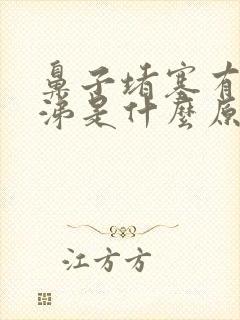 鼻子堵塞有
涕是什麼原
江方方